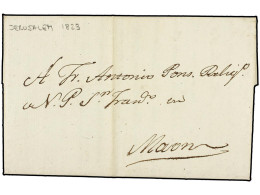 JERUSALEM 1823
A Fr. Antonio Pons. Relig.º
a N. P. S.n Fran.co en
Maon